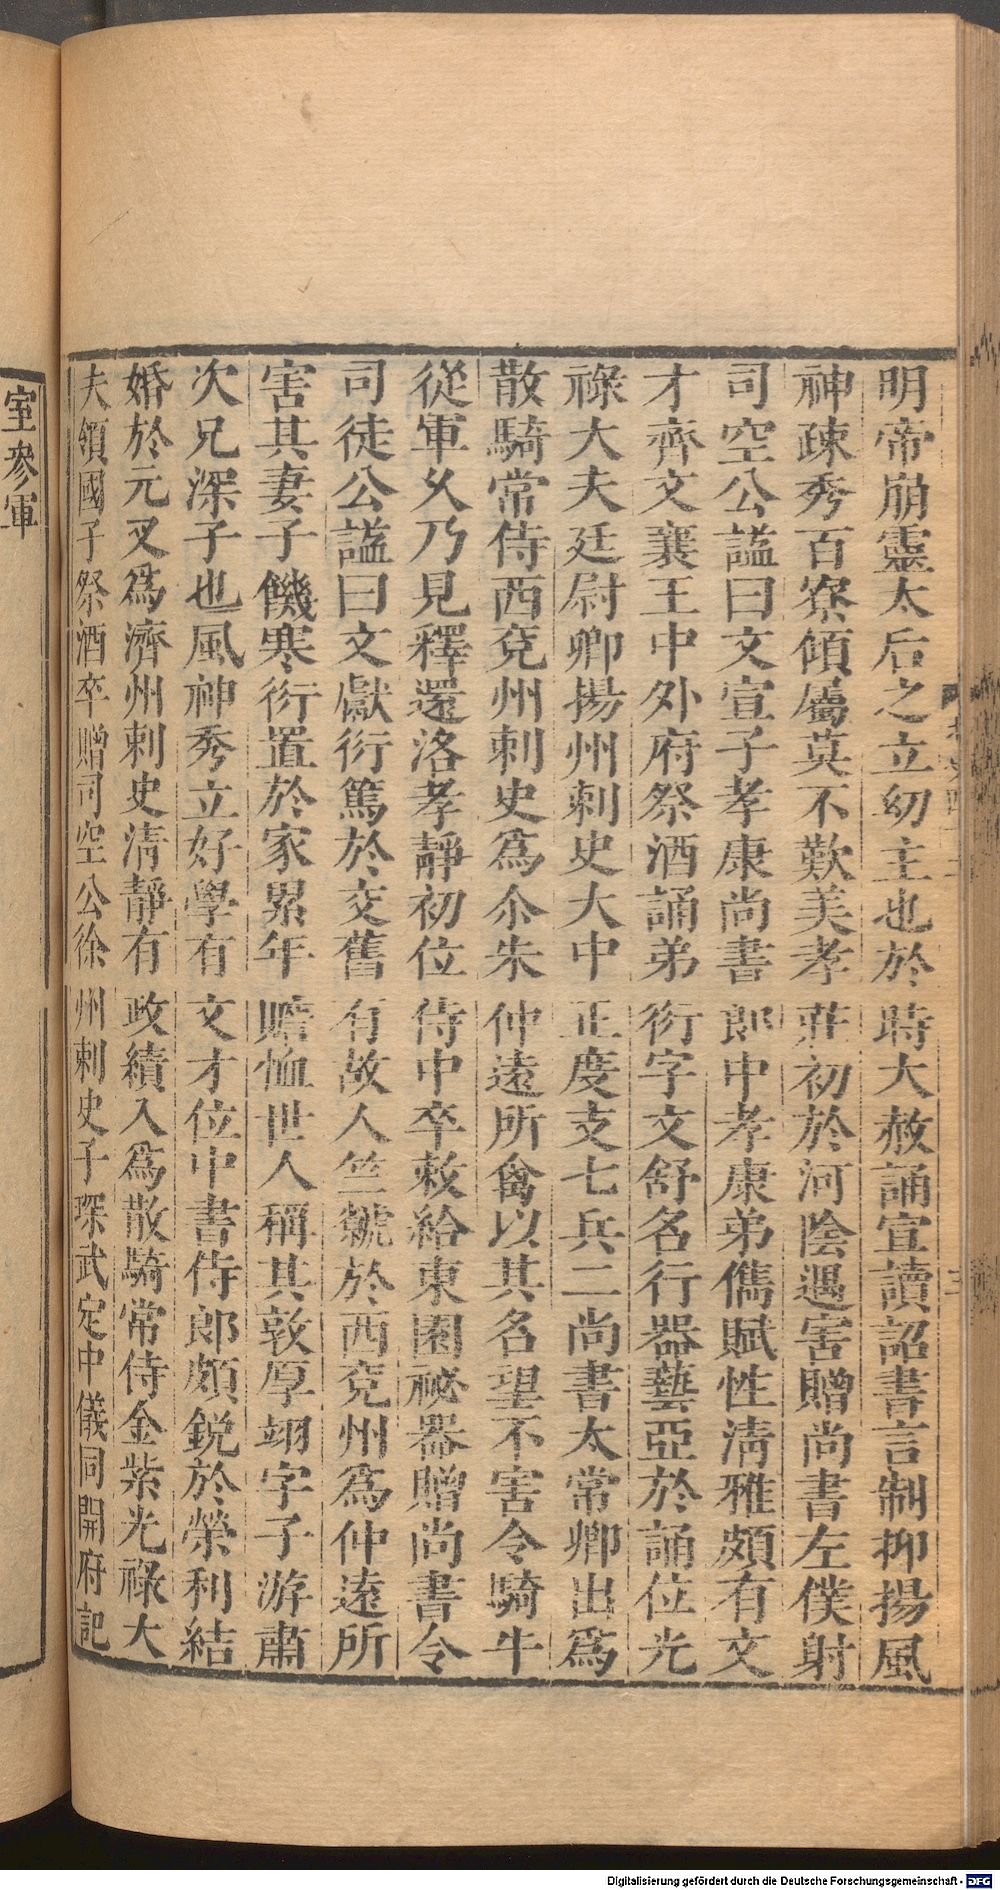 明帝崩靈太后之立幼主也於時大赦誦宣讀詔書言制抑揚風
神疎秀百寮傾屬莫不歎美孝莊初於河陰遇害贈尚書左僕射
司空公諡曰文宣子孝康尚書郎中孝康弟儁賦性清雅頗有文
才齊文襄王中外府祭酒誦弟衍字文舒名行器藝亞於誦位光
祿大夫廷尉卿揚州刺史大中正度支七兵二尚書太常卿出爲
散騎常侍西兗州刺史爲尒朱仲遠所禽以其名望不害令騎牛
從軍乆乃見釋還洛孝靜初位侍中卒敕給東園祕器贈尚書令
司徒公諡曰文獻衍篤於交舊有故人竺虩於西兗州爲仲遠所
害其妻子饑寒衍置於家累年贍恤世人稱其敦厚翊字子游肅
次兄深子也風神秀立好學有文才位中書侍郎頗鋭於榮利結
婚於元叉爲濟州刺史清靜有政績入爲散騎常侍金紫光祿大
夫領國子祭酒卒贈司空公徐州刺史子琛武定中儀同開府記
室參軍
Digitalisierung gefördert durch die Deutsche Forschungsgemeinschaft - DFG